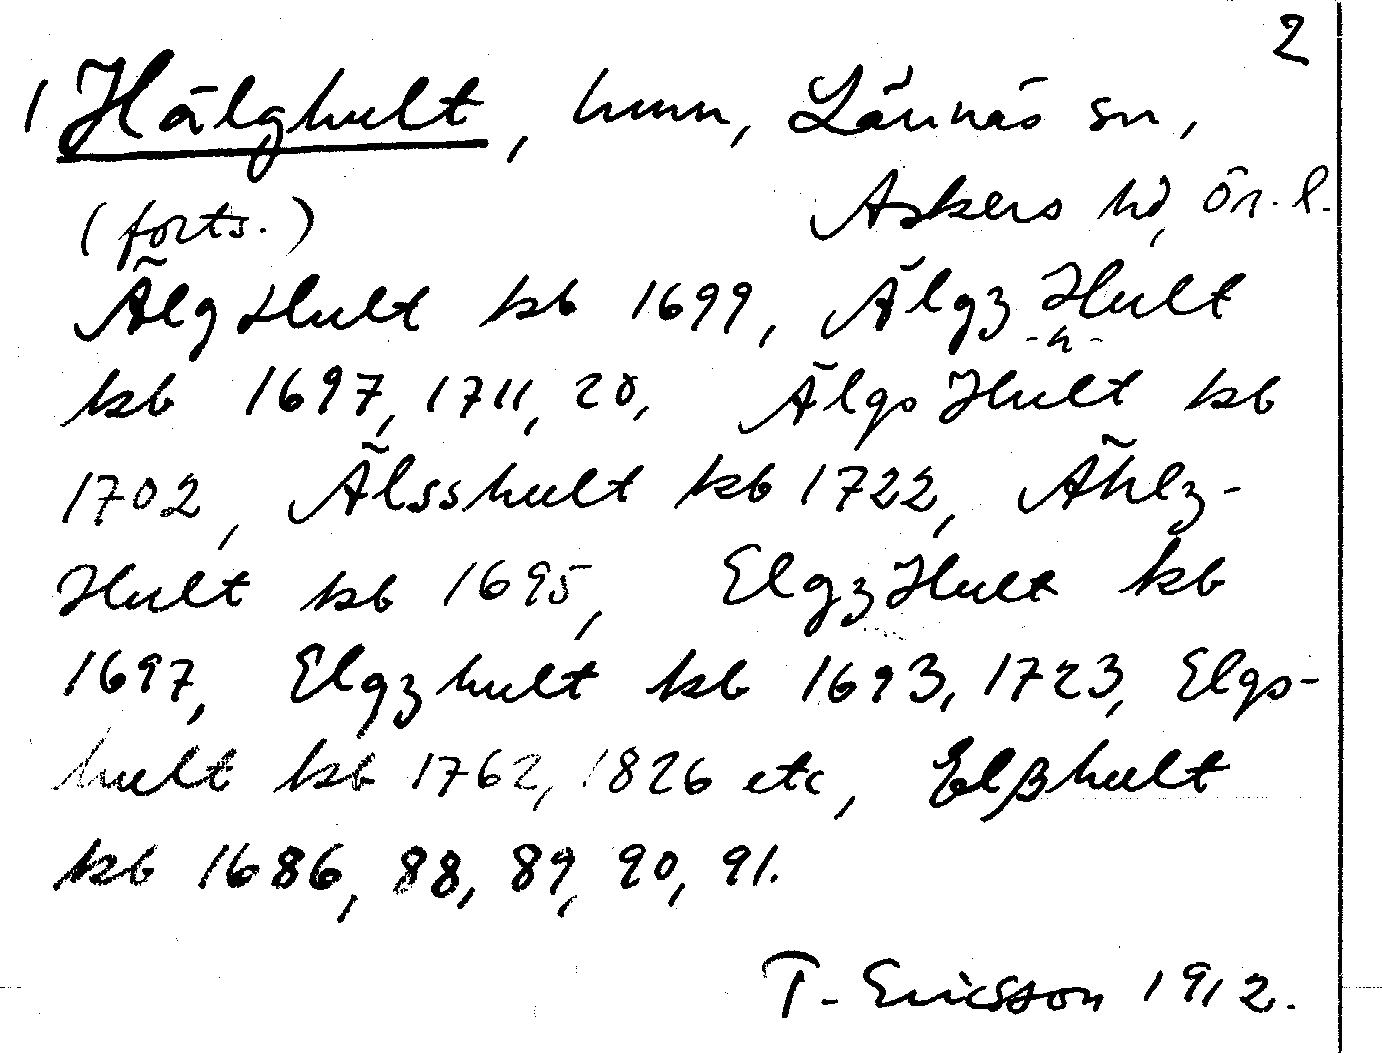 2
1 Hälghult, hmn, Lännäs sn,
(forts.) Askers hd, Ör. l.
ÄlgHult kb 1699, ÄlgzHult
-h-
kb 1697, 1711, 20, ÄlgsHult kb
1702, Älsshult kb 1722, Ählz-
Hult kb 1695, ElgzHult kb
1697, Elgzhult kb 1693, 1723, Elgs-
hult kb 1762, 1826 etc, Elßhult
kb 1686, 88, 89, 90, 91.
T. Ericsson 1912.